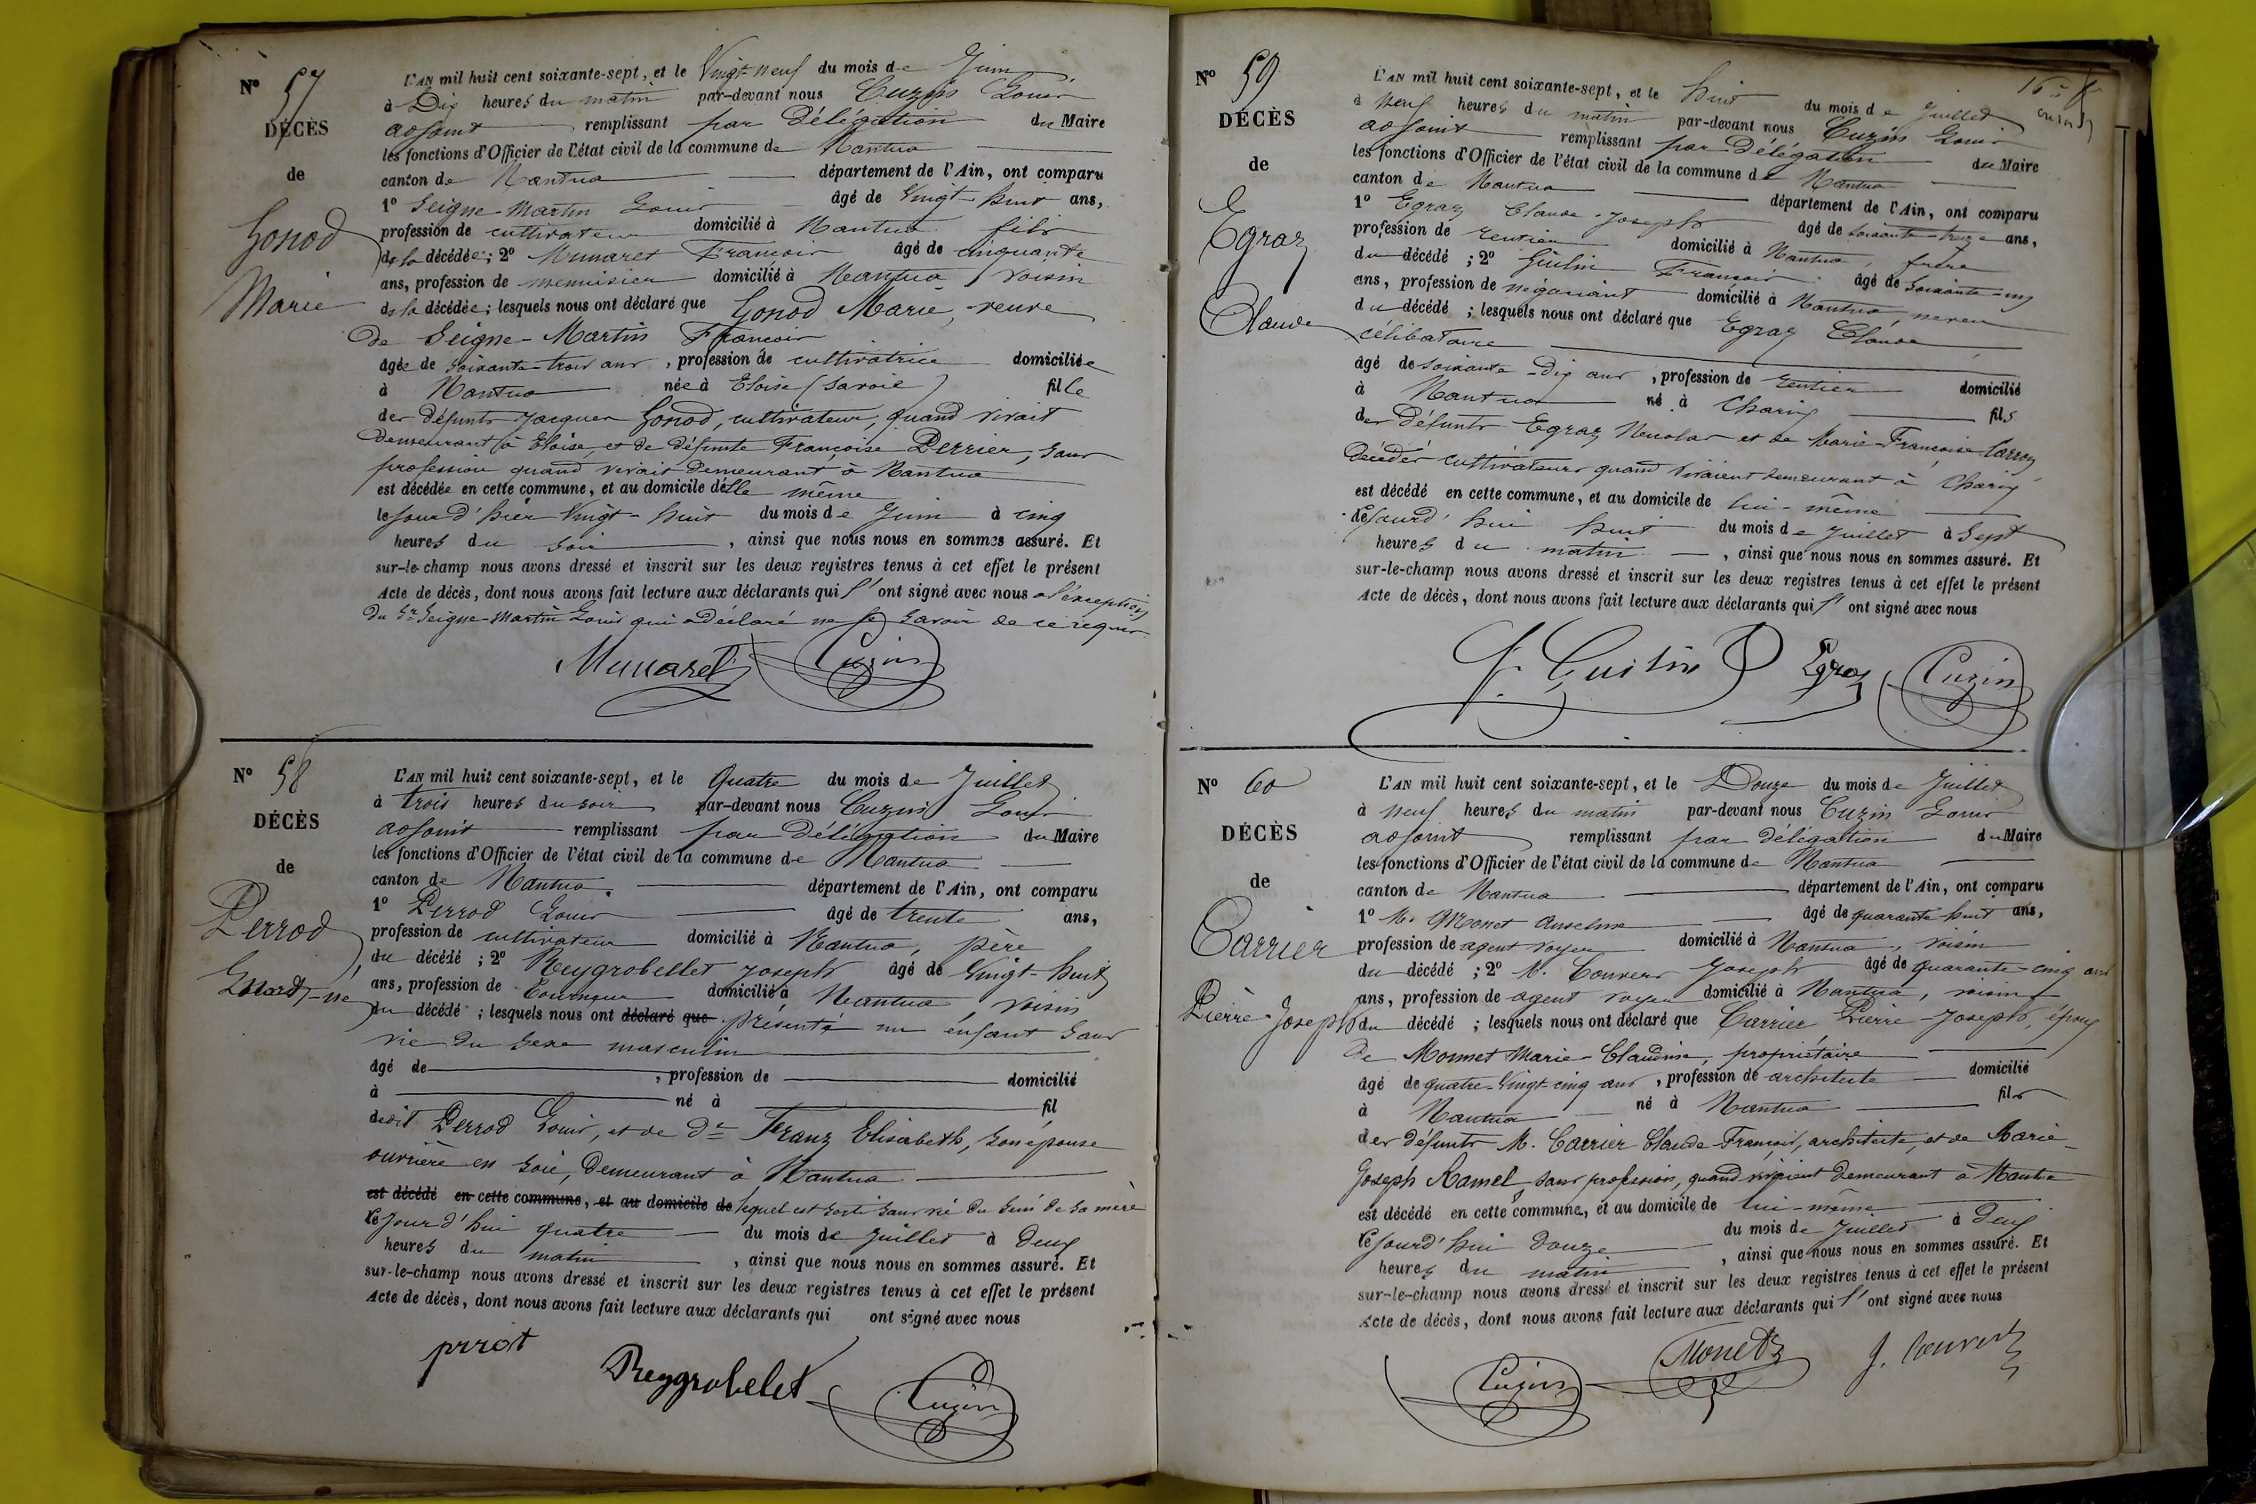 N° 57
DÉCÈS
de
Gonod
Marie
L'AN mil huit cent soixante-sept, et le Vingt-neuf du mois de Juin
à Dix heures du matin par-devant nous Cuzin Louis
adjoint remplissant par Délégation du Maire
les fonctions d'Officier de l'état civil de la commune de Nantua
canton de Nantua département de l'Ain, ont comparu
1° Seigne-Martin Louis âgé de Vingt-huit ans,
profession de cultivateur domicilié à Nantua fils
de la décédée; 2° Munaret François âgé de cinquante
ans, profession de menuisier domicilié à Nantua voisin
de la décédée; lesquels nous ont déclaré que Gonod Marie, veuve
de Seigne-Martin François
âgée de soixante-trois ans, profession de cultivatrice domiciliée
à Nantua née à Eloise (Savoie) fille
des défunts Jacques Gonod, cultivateur, quand vivait
demeurant à Eloise, et de défunte Françoise Perrier, sans
profession quand vivait demeurant à Nantua
est décédée en cette commune, et au domicile d'Elle même
le jour d'hier Vingt-huit du mois de Juin à cinq
heures du soir, ainsi que nous nous en sommes assuré. Et
sur-le-champ nous avons dressé et inscrit sur les deux registres tenus à cet effet le présent
Acte de décès, dont nous avons fait lecture aux déclarants qui l' ont signé avec nous à l'exception
du Sr Seigne-Martin Louis qui a déclaré ne le savoir de ce requis
Munaret Cuzin
N° 58
DÉCÈS
de
Perrod
L'AN mil huit cent soixante-sept, et le Quatre du mois de Juillet
à trois heures du soir par-devant nous Cuzin Louis
adjoint remplissant par Délégation du Maire
les fonctions d'Officier de l'état civil de la commune de Nantua
canton de Nantua département de l'Ain, ont comparu
1° Perrod Louis âgé de trente ans,
profession de cultivateur domicilié à Nantua, père
du décédé; 2° Reygrobellet Joseph âgé de Vingt-huit
ans, profession de Tourneur domicilié à Nantua voisin
du décédé; lesquels nous ont déclaré que présenté un enfant sans
vie du sexe masculin
âgé de , profession de domicilié
à né à fil
dudit Perrod Louis, et de de Franz Elisabeth, son épouse
ouvrière en soie, demeurant à Nantua
est décédé en cette commune, et au domicile de lequel est sorti sans vie du sein de sa mère
le jour d'hui quatre du mois de Juillet à Deux
heures du matin, ainsi que nous nous en sommes assuré. Et
sur-le-champ nous avons dressé et inscrit sur les deux registres tenus à cet effet le présent
Acte de décès, dont nous avons fait lecture aux déclarants qui ont signé avec nous
prrot Reygrobelet Cuzin
N° 59
DÉCÈS
de
Egraz
Claude
L'AN mil huit cent soixante-sept, et le huit du mois de Juillet
à Neuf heures du matin par-devant nous Cuzin Louis
adjoint remplissant par Délégation du Maire
les fonctions d'Officier de l'état civil de la commune de Nantua
canton de Nantua département de l'Ain, ont comparu
1° Egraz Claude-Joseph âgé de soixante-treize ans,
profession de rentier domicilié à Nantua, frère
du décédé; 2° Guilin François âgé de soixante-un
ans, profession de négociant domicilié à Nantua neveu
du décédé; lesquels nous ont déclaré que Egraz Claude
célibataire
âgé de soixante-Dix ans, profession de rentier domicilié
à Nantua né à Charix fils
des Défunts Egraz Nicolas et de Marie-Françoise
décédés cultivateurs quand vivaient demeurant à Charix
est décédé en cette commune, et au domicile de lui-même
le jourd'hui huit du mois de Juillet à Sept
heures du matin, ainsi que nous nous en sommes assuré. Et
sur-le-champ nous avons dressé et inscrit sur les deux registres tenus à cet effet le présent
Acte de décès, dont nous avons fait lecture aux déclarants qui l' ont signé avec nous
Guilin Egraz Cuzin
N° 60
DÉCÈS
de
Carrier
Pierre-Joseph
L'AN mil huit cent soixante-sept, et le Douze du mois de Juillet
à neuf heures du matin par-devant nous Cuzin Louis
adjoint remplissant par délégation du Maire
les fonctions d'Officier de l'état civil de la commune de Nantua
canton de Nantua département de l'Ain, ont comparu
1° M. Monet Anselme âgé de quarante huit ans,
profession de agent voyer domicilié à Nantua, voisin
du décédé; 2° M. Couvert Joseph âgé de quarante-cinq ans
ans, profession de agent voyer domicilié à Nantua, voisin
du décédé; lesquels nous ont déclaré que Carrier Pierre-Joseph, époux
de Monnet Marie-Claudine, propriétaire
âgé de quatre-Vingt-cinq ans, profession de architecte domicilié
à Nantua né à Nantua fils
des défunts M. Carrier Claude François, architecte, et de Marie-
Joseph Ramel, sans profession, quand vivaient demeurant à Nantua
est décédé en cette commune, et au domicile de lui-même
le jourd'hui douze du mois de Juillet à Deux
heures du matin, ainsi que nous nous en sommes assuré. Et
sur-le-champ nous avons dressé et inscrit sur les deux registres tenus à cet effet le présent
Acte de décès, dont nous avons fait lecture aux déclarants qui l' ont signé avec nous
Cuzin Monet J. Couvert